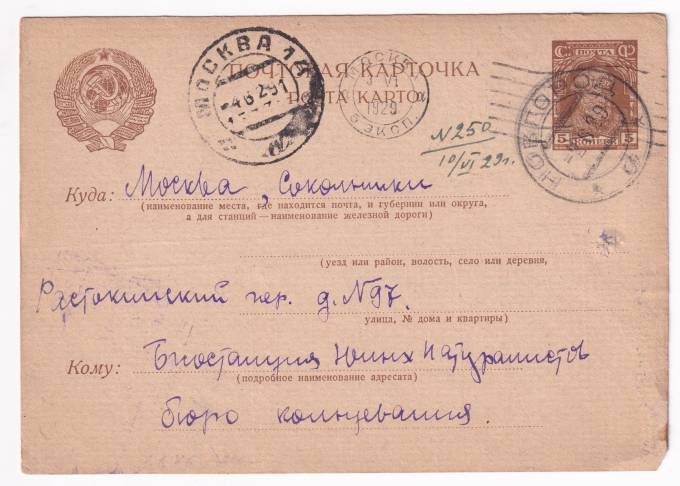 ПОЧТОВАЯ КАРТОЧКА
POŜTA KARTO
ПОЧТА
5 5
КОПЕЕК
МОСКВА 14
4 6 29
МОСКВА
1929
6 ЭКСП.
НОВГОРОД
N 250
10/VI 29г.
Куда: Москва, Сокольники
(наименование места, где находится почта, и губернии или округа,
а для станций — наименование железной дороги)
(уезд или район, волость, село или деревня,
Растокинский пер. д. N 97.
улица, № дома и квартиры)
Кому: Биостанция Юных Натуралистов
(подробное наименование адресата)
бюро кольцевания.